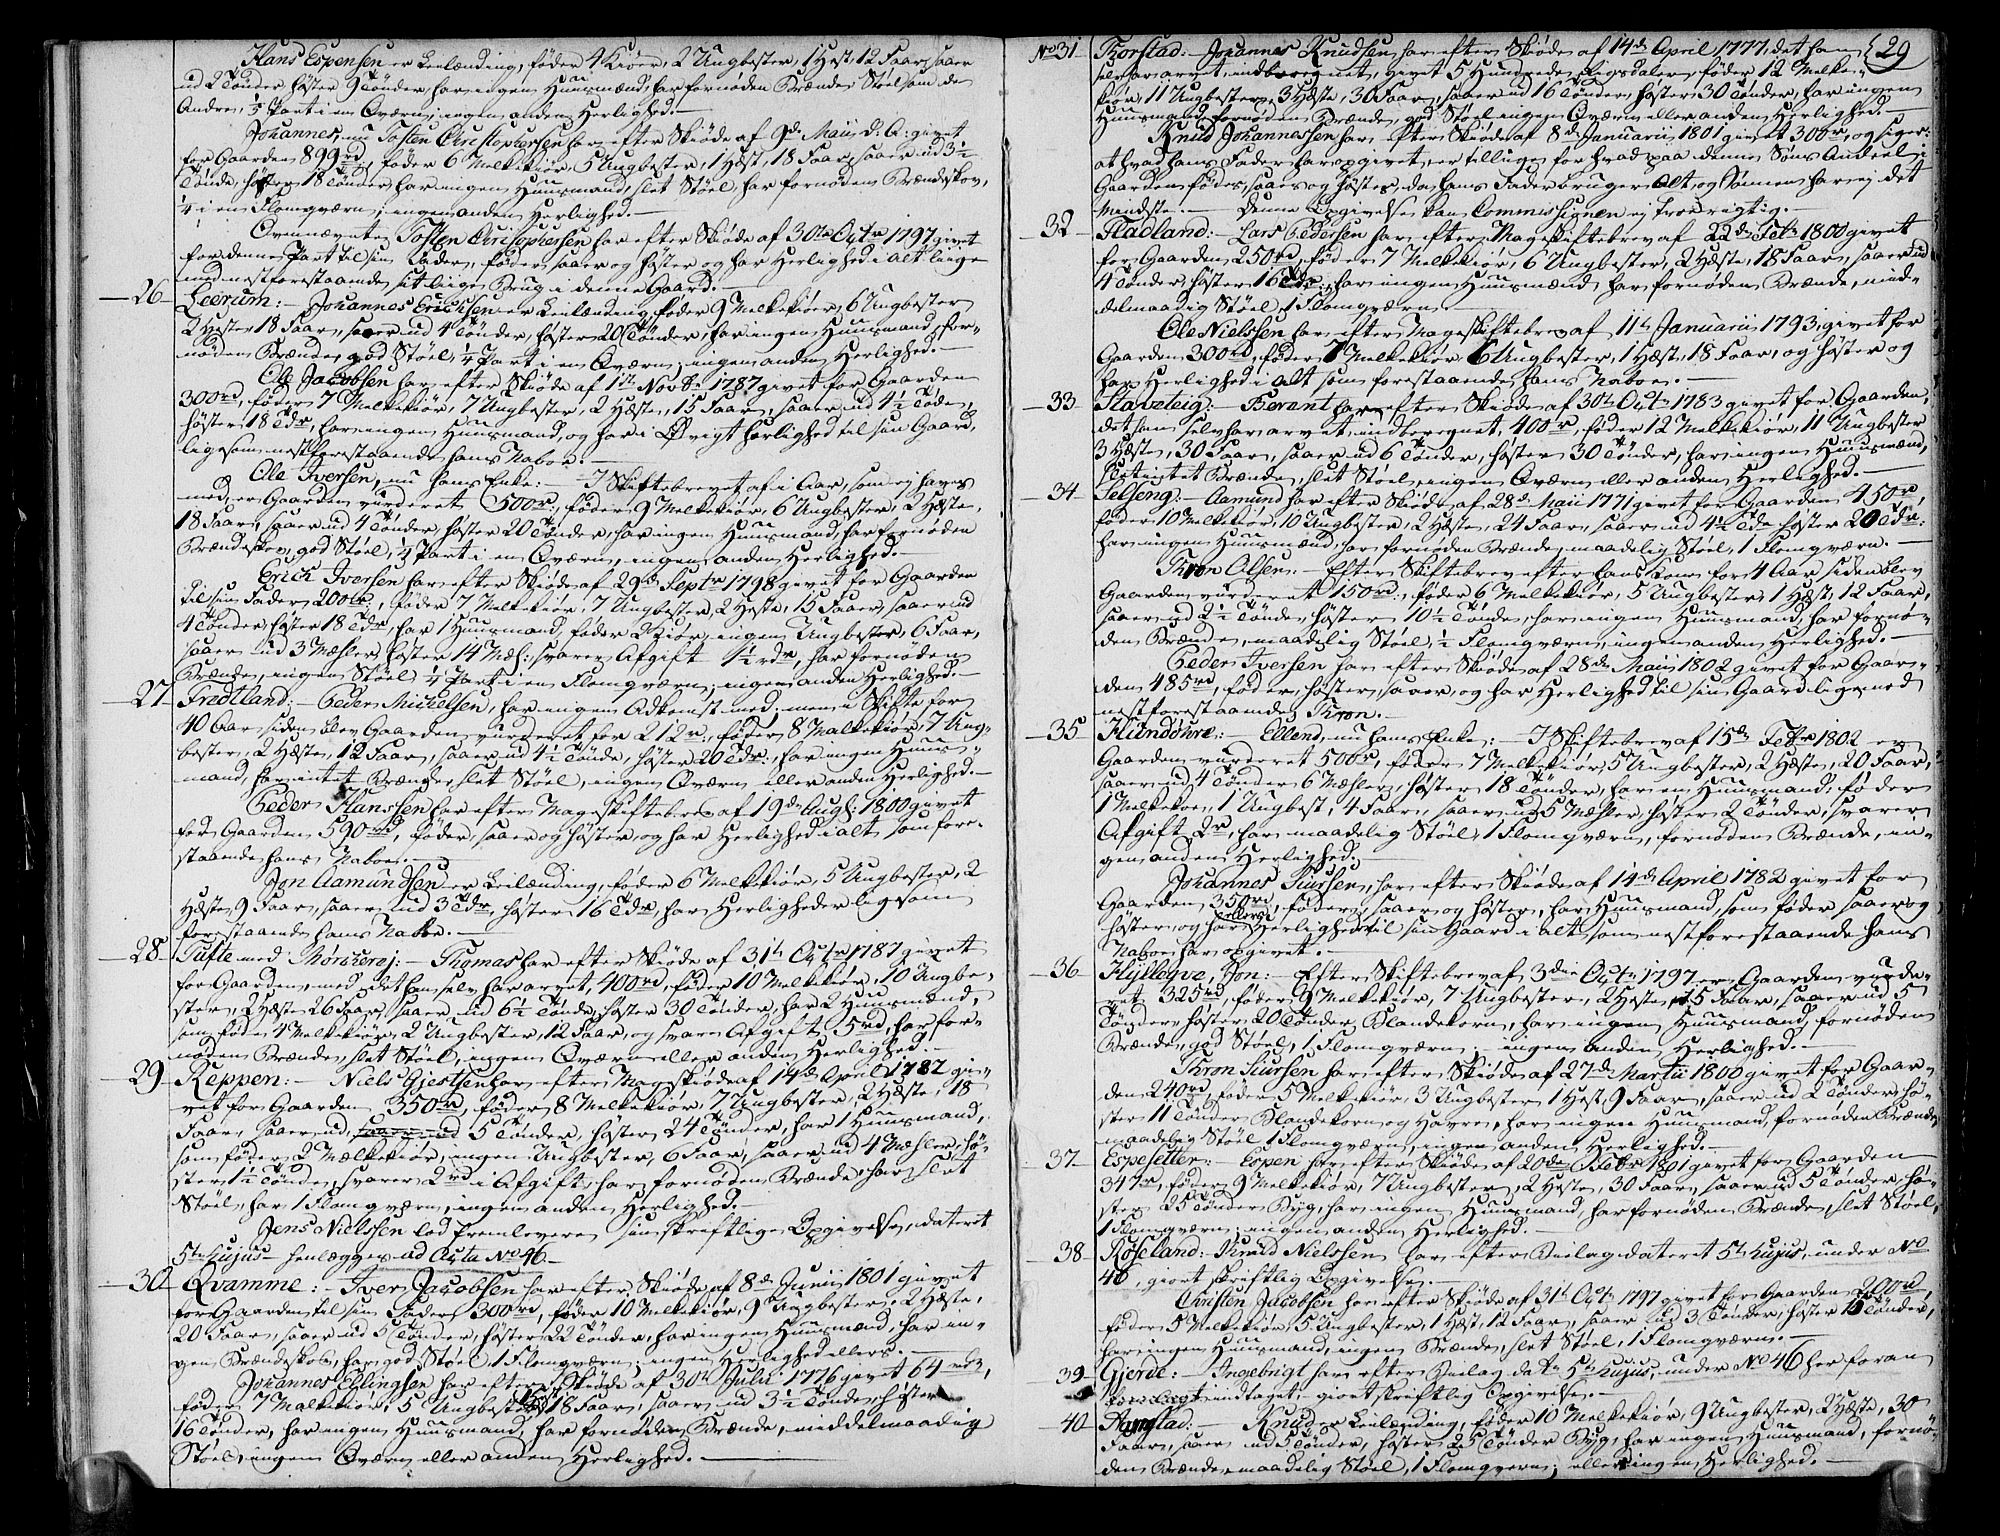 Hans Espensen er Leilænding, føder 4 Kiør, 2 Ungbester, 1 Hest, 12 Faar, saaer
ud 2 Tønder, høster 9 Tønder, har ingen Huusmænd, har fornøden Brænde, Støel som de
Andre, Part i en Qværn, ingen anden Herlighed. —
Johannes, nu Tosten Christophersen har efter Skiøde af 9de Maii d: A: givet
for Gaarden 899 rd, føder 6 Melkekiør, 5 Ungbester, 1 Hæst, 18 Faar, saaer ud 3½
Tønde, høster 18 Tønder, har ingen Huusmand, slet Støel, har fornøden Brændeskov,
¼ i en Flomqværn, ingen anden Herlighed. —
Ovennævnte Tosten Christophersen har efter Skiøde af 30te Octr 1797 givet
for denne Part til sin Fader, føder, saaer og høster og har Herlighed i alt liige
med nestforestaaende sit liige Brug i denne Gaard. —
26 Leerum: — Johannes Erichsen er Leilænding, føder 9 Melkekiør, 6 Ungbester
2 Hester 18 Faar, saaer ud 4 Tønder, høster 20 Tønder, har ingen Huusmand, for-
nøden Brænde, god Støel, ¼ Part i en Qværn, ingen anden Herlighed. —
Ole Jacobsen har efter Skiøde af 1te Novbr 1787 givet for Gaarden
300 rd, føder 7 Melkekiør, 7 Ungbester, 2 Hæste, 15 Faar, saaer ud 4½ Tønde,
høster 18 Tdr, har ingen Huusmand, og har i Øvrigt Herlighed til sin Gaard,
ligesom nestforestaaende hans Naboe. —
Ole Iversen, nu hans Enke: — I Skiftebrevet af i Aar, som ej haves
med, er Gaarden vurderet 500 r, føder 9 Melkekiør, 6 Ungbester, 2 Hæste,
18 Faar, saaer ud 4 Tønder, høster 20 Tønder, har ingen Huusmand, har fornøden
Brændeskov, god Støel, ¼ Part i en Qværn, ingen anden Herlighed. —
Erich Iversen har efter Skiøde af 29de Septr 1798 givet for Gaarden
til sin Fader 200 r, føder 7 Melkekiør, 7 Ungbester, 2 Hæste, 15 Faar, saaer ud
4 Tønder, høster 18 Tdr, har 1 Huusmand, føder 2 Kiør, ingen Ungbester, 6 Faar,
saaer ud 3 Mæhler, høster 14 Mæh:, svarer Afgift 1½ rdr, har fornøden
Brænde, ingen Støel ¼ Part i en Flomqværn, ingen anden Herlighed. —
27 Fredtland: — Peder Mickelsen, har ingen Adkomst med: men i Skifte for
40 Aar siden blev Gaarden vurderet for 212 r., føder 8 Malkekiør, 7 Ung-
bester, 2 Hæste, 12 Faar, saaer ud 4½ Tønde, høster 20 Tdr:, har ingen Huus-
mand, har intet Brænde, slet Støel, ingen Qværn eller anden Herlighed. —
Peder Hanssen har efter Mageskiftebrev af 19de Augt: 1800 givet
for Gaarden 590 rd, føder, saaer og høster, og har Herlighed i alt som fore-
staaende hans Naboe. —
Jon Aamundsen er Leilænding, føder 6 Melkekiør, 5 Ungbester, 2
Hæste, 9 Faar, saaer ud 3 Tdr, høster 16 Tdr, har Herligheder ligesom
forestaaende hans Naboe. —
28 Tufte med Mørchroj: — Thomas har efter Skiøde af 31te Octr 1787 givet
for Gaarden, med det han selv har arvet, 400 rd, føder 10 Melkekiør, 10 Ungbe-
ster, 2 Hæste 26 Faar, saaer ud 6½ Tønde, høster 30 Tønder, har 2 Huusmænd,
som føder 4 Melkekiør, 2 Ungbester, 12 Faar, og svarer Afgift 5 rd, har for-
nøden Brænde, slet Støel, ingen Qværn eller anden Herlighed. —
29 Reppen: — Niels Gjestsen har efter Mageskiøde af 14de April 1782 gi-
vet for Gaarden 350 rd, føder 8 Melkekiør, 7 Ungbester, 2 Hæste, 18
Faar, saaer ud, saaer ud 5 Tønder, høster 24 Tønder, har 1 Huusmand,
som føder 2 Melkekiør, ingen Ungbester, 6 Faar, saaer ud 4 Mæhler, hø-
ster 1½ Tønde, svarer 2 rd i Afgift, har fornøden Brænde, har slet
Støel, har 1 Flomqværn, ingen anden Herlighed. —
Jens Nielssen lod fremlevere sin skriftlige Opgivelse, dateret
5te hujus henlægges ad Acta No 46. —
30 Qvamme: — Iver Jacobsen har efter Skiøde af 8de Junii 1801 givet
for Gaarden til sin Fader 300 rd, føder 10 Melkekiør, 9 Ungbester, 2 Hæste,
20 Faar, saaer ud 5 Tønder, høster 22 Tønder, har ingen Huusmænd, har in-
gen Brændeskov, har god Støel, 1 Flomqværn, ingen Herlighed ellers. —
Johannes Ellingsen har efter Skiøde af 30te Julii 1776 givet 64 rdr,
føder 7 Malkekiør, 5 Ungbester, 18 Faar, saaer ud 3½ Tønde, høster
16 Tønder, har ingen Huusmand, har fornøden Brænde, middelmaadig
Støel, ingen Qværn eller anden Herlighed. —
29
No 31 Thorstad: — Johannes Knudsen har efter Skiøde af 14de April 1777, det han
selv har arvet, indberegnet, givet 5 Hundrede Rigsdaler, føder 12 Melke-
kiør, 11 Ungbester, 3 Hæste, 30 Faar, saaer ud 16 Tønder, høster 30 Tønder, har ingen
Huusmand, fornøden Brænde, god Støel, ingen Qværn eller anden Herlighed. —
Knud Johannessen har, efter Skiøde af 8de Januarii 1801 givet 300 r, og siger:
at hvad hans Fader har opgivet, er tillige for hvad paa denne Søns Andeel i
Gaarden fødes, saaes og høstes, da hans Fader bruger Alt, og Sønnen har ej det
Mindste. — Denne Opgivelse kan Commissionen ej troe rigtig. —
32 Fladland: — Lars Pedersen har efter Mageskiftebrev af 22de Febr 1800 givet
for Gaarden 250 rd, føder 7 Melkekiør, 6 Ungbester, 2 Hæste, 18 Faar, saaer ud
4 Tønder, høster 16 Tdr, har ingen Huusmænd, har fornøden Brænde, mid-
delmaadig Støel, 1 Flomqværn. —
Ole Nielssen har efter Mageskiftebrev af 11te Januarii 1793 givet for
Gaarden 300 rd, føder 7 Melkekiør 6 Ungbester, 1 Hæst, 18 Faar, og høster og
har Herlighed i alt som forestaaende hans Naboe. —
33 Stavteig: — Berent har efter Skiøde af 30te Octr 1783 givet for Gaarden,
det han selv har arvet, indberegnet, 400 r, føder 12 Melkekiør, 11 Ungbester
3 Hæste, 30 Faar, saaer ud 6 Tønder, høster 30 Tønder, har ingen Huusmænd,
intet Brænde, slet Støel, ingen Qværn eller anden Herlighed. —
34 Selseng: — Aamund har efter Skiøde af 28de Maii 1771 givet for Gaarden 450 r,
føder 10 Melkekiør, 10 Ungbester, 2 Hæste, 24 Faar, saaer ud 4½ Tde, høster 20 Tdr:
har ingen Huusmænd, har fornøden Brænde, maadelig Støel, 1 Flomqværn. —
Thron Olsen: — Efter Skiftebrev efter hans Kone for 4 Aar siden blev
Gaarden vurderet 150 rd, føder 6 Melkekiør, 5 Ungbester, 1 Hæst, 12 Faar,
saaer ud 2½ Tønde, høster 10½ Tønde, har ingen Huusmand, har fornø-
den Brænde, maadelig Støel, ½ Flomqværn, ingen anden Herlighed. —
Peder Iversen har efter Skiøde af 28de Maij 1802 givet for Gaar-
den 485 rd, føder, høster, saaer, og har Herlighed til sin Gaard lige med
nestforestaaende Thron. —
35 Hundøhre: — Ellend, nu hans Enke: — I Skiftebrev af 15de Febr 1802 er
Gaarden vurderet 500 r, føder 7 Melkekiør, 5 Ungbester, 2 Hæste, 20 Faar,
saaer ud 4 Tønder 6 Mæhler, høster 18 Tønder, har en Huusmand, føder
1 Melkekoe, 1 Ungbest, 4 Faar, saaer ud 5 Mæhler høster 2 Tønder, svarer
Afgift 2 r, har maadelig Støel, 1 Flomqværn, fornøden Brænde, in-
gen anden Herlighed. —
Johannes Siursen, har efter Skiøde af 14de April 1782 givet for
Gaarden 350 rd, føder, saaer og høster, har Huusmand, som føder saaer og
høster, og har ellers Herlighed til sin Gaard i alt som nestforestaaende hans
Naboe har opgivet. —
36 Hyllegve, Jon: — Efter Skiftebrev af 3die Octr 1797 er Gaarden vurde-
ret 325 rd, føder 9 Melkekiør, 7 Ungbester, 2 Hæste, 15 Faar, saaer ud 5
Tønder, høster 20 Tønder Blandekorn, har ingen Huusmand, fornøden
Brænde, god Støel, 1 Flomqværn: — ingen anden Herlighed. —
Thron Siursen har efter Skiøde af 27de Martii 1800 givet for Gaar-
den 240 rd, føder 5 Melkekiør, 3 Ungbester 1 Hest, 9 Faar, saaer ud 2 Tønder, hø-
ster 11 Tønder Blandekorn og Havre, har ingen Huusmand, fornøden Brænde
maadelig Støel 1 Flomqværn, ingen anden Herlighed. —
37 Espesetter: Espen har efter Skiøde af 20de Febr 1801 givet for Gaarden
347 r, føder 9 Melkekiør, 7 Ungbester, 2 Heste, 30 Faar, saaer ud 5 Tønder, hø-
ster 25 Tønder Byg, har ingen Huusmand, har fornøden Brænde, slet Støel,
1 Flomqværn: ingen anden Herlighed. —
38 Røseland: Knud Nielssen har efter Beilag dateret 5te hujus, under No
46, giort skriftlig Opgivelse. —
Christen Jacobsen har efter Skiøde af 31te Octr 1797 givet for Gaarden 200 rd,
føder 5 Melkekiør, 5 Ungbester, 1 Hæst, 12 Faar, saaer ud 3 Tønder, høster 15 Tønder,
har ingen Huusmand, ingen Brænde, slet Støel, 1 Flomqværn. —
39 Gjerde: — Ingebrigt har efter Beilag dat: 5te hujus, under No 46 her foran
indtaget, giort skriftlig Opgivelse. —
40 Hamstad: Knud er Leilænding, føder 10 Melkekiør, 9 Ungbester, 2 Hæste, 30
Faar, saaer ud 5 Tønder, høster 25 Tønder Byg, har ingen Huusmand, fornø-
den Brænde, maadelig Støel, 1 Flomqværn; ellers ingen Herlighed. —